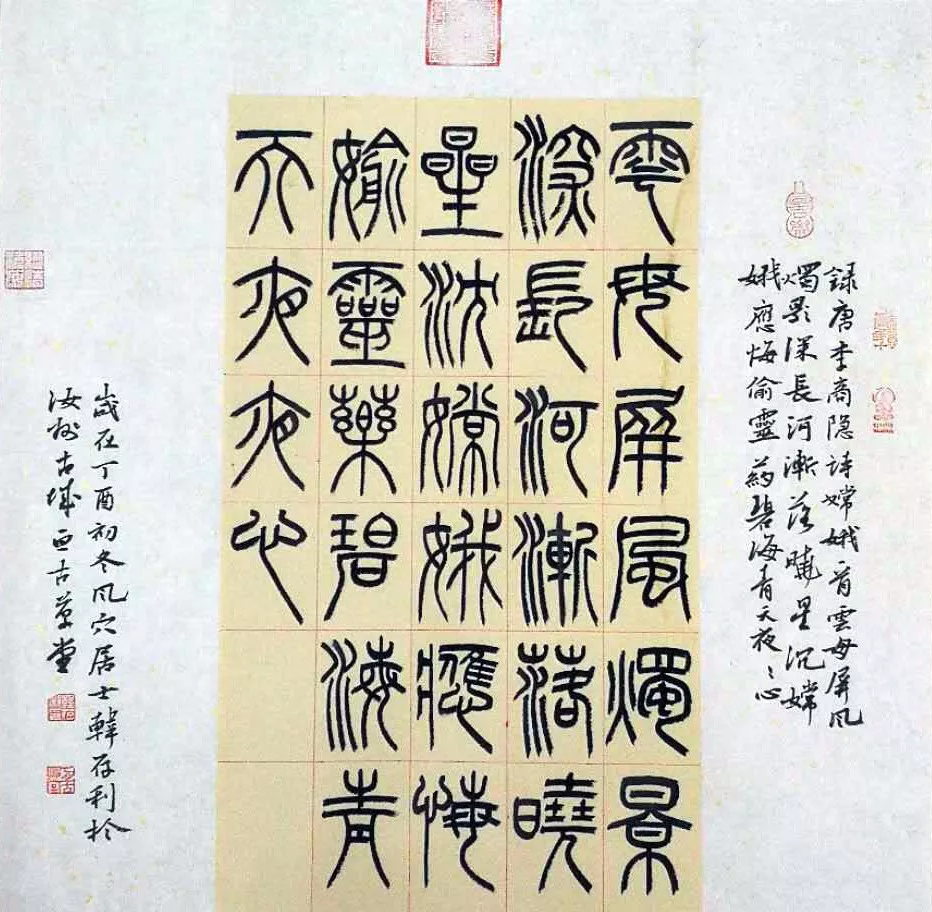 錄唐李商隐詩嫦娥首雲母屏风
燭影深長河漸落曉星沉嫦
娥應悔偷靈药碧海青天夜〻心
雲母屏風燭景
深長河漸落曉
星沈嫦娥應悔
婾靈藥碧海青
天夜夜心
歲在丁酉初冬风穴居士韓存利於
汝州古城亞古草堂